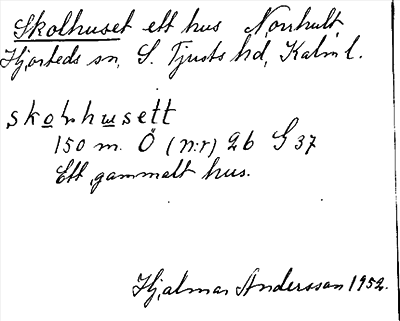 Skolhuset ett hus Norrhult
Hjorteds sn, S. Tjusts hd, Kalm l.
skolhusett
150 m. Ö (n:r) 26 G 37
Ett gammalt hus.
Hjalmar Andersson 1952.